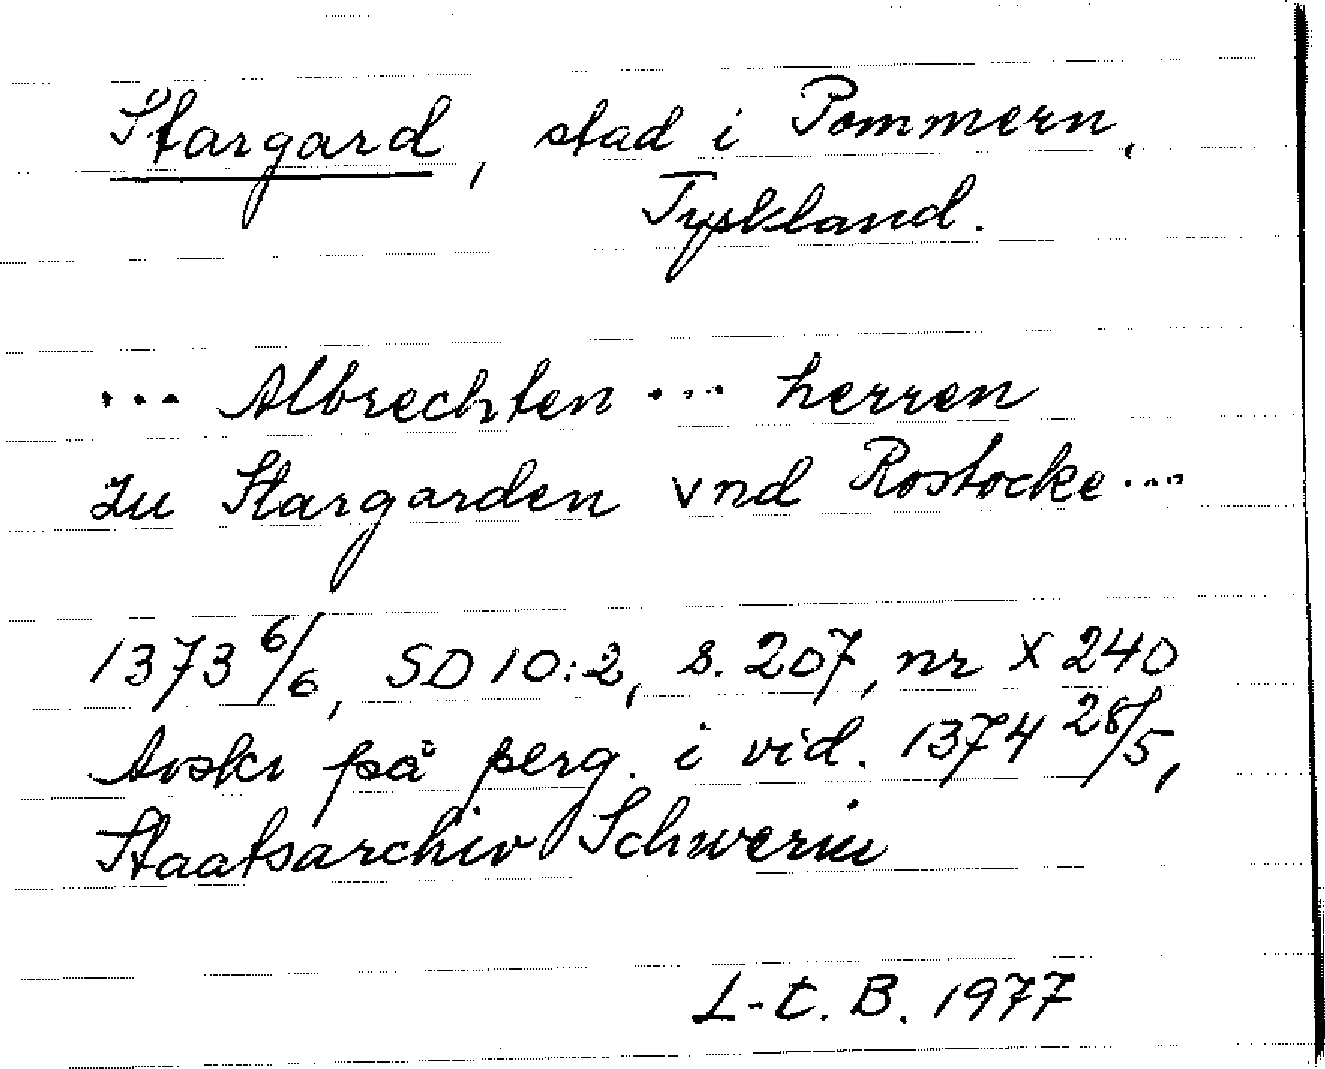 Stargard, stad i Pommern,
Tyskland.
... Albrechten ... herren
zu Stargarden vnd Rostocke...
1373 6/6, SD 10:2, s. 207, nr X 240
Avskr på perg. i vid. 1374 28/5,
Staatsarchiv Schwerin
L-C. B. 1977